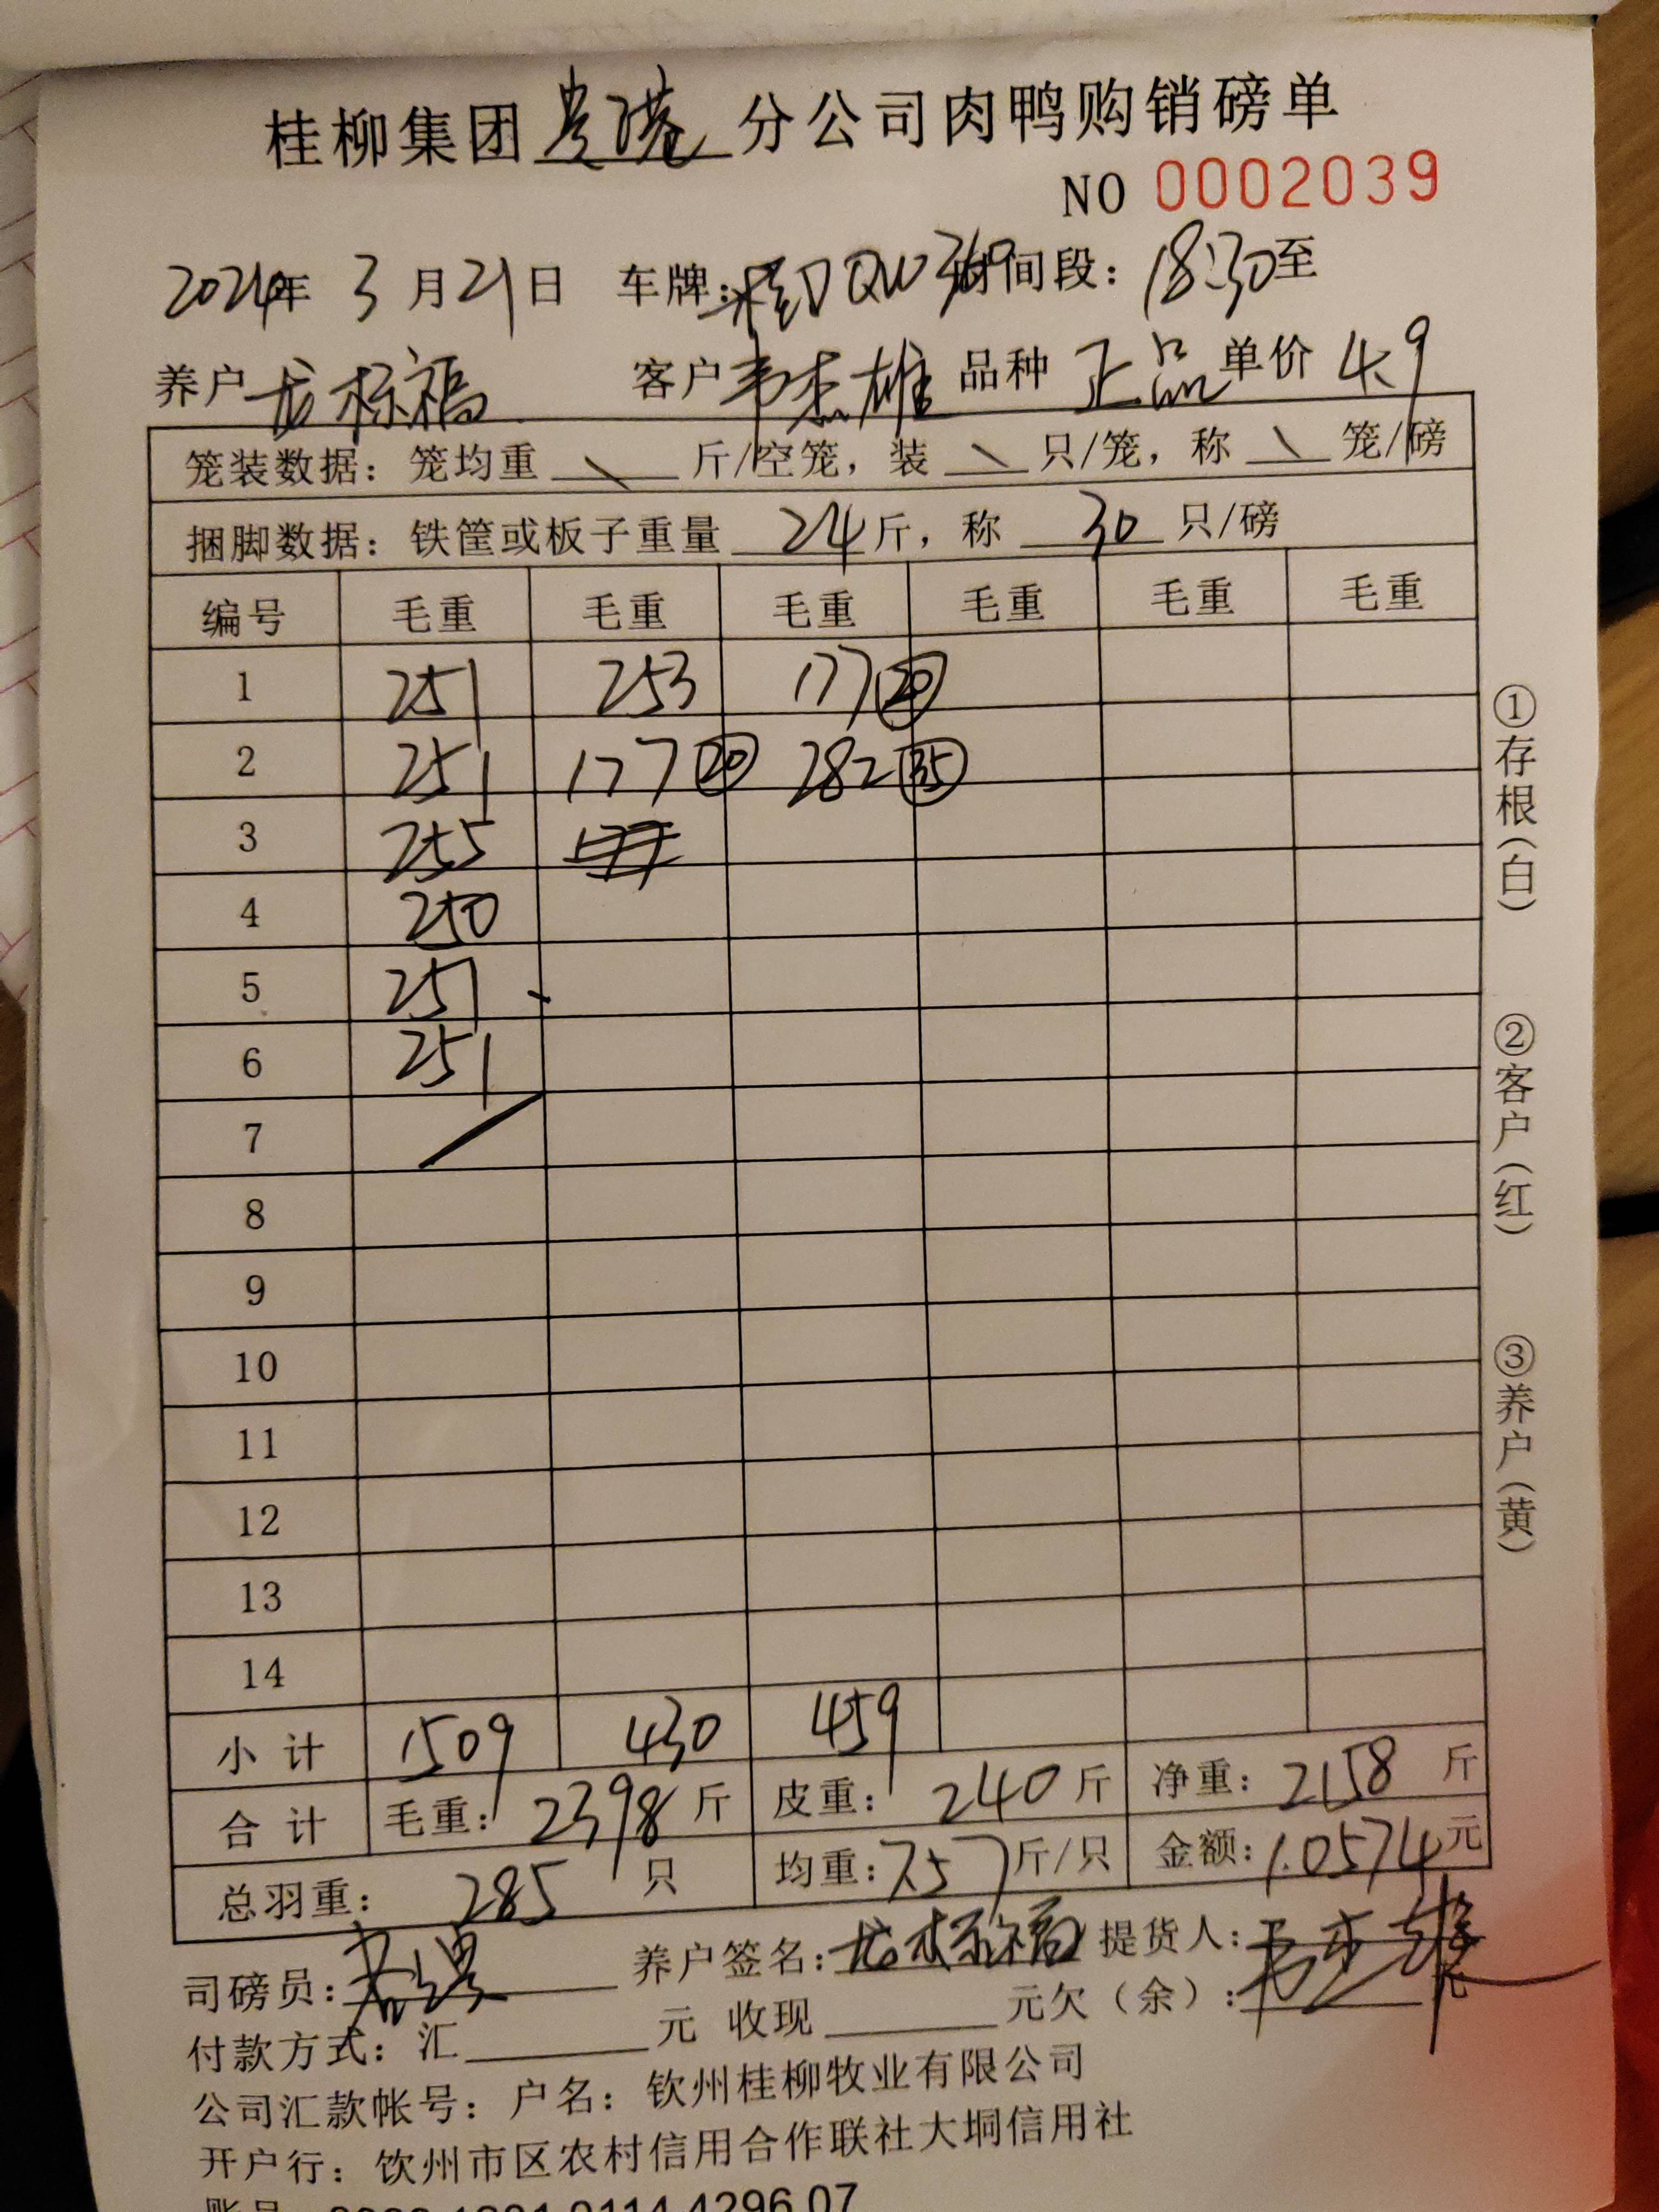 桂柳集团贵港分公司肉鸭购销磅单
NO 0002039
2024年 3月21日 车牌：桂D QW369 时间段：18:30至
养户 龙标福 客户 韦杰雄 品种 正品 单价 4.9
笼装数据：笼均重 \ 斤/空笼，装 \ 只/笼，称 \ 笼/磅
捆脚数据：铁筐或板子重量 24 斤，称 30 只/磅
编号 毛重 毛重 毛重 毛重 毛重 毛重
1 251 253 177⑳
2 251 177⑳ 282㉟
3 255
4 250
5 251
6 251
7 /
8
9
10
11
12
13
14
小计 1509 430 459
合计 毛重：2398斤 皮重：240斤 净重：2158斤
总羽重：285只 均重：7.57斤/只 金额：10574元
司磅员： 养户签名：龙标福 提货人：韦杰雄
付款方式：汇 元 收现 元欠（余）： 元
公司汇款帐号：户名：钦州桂柳牧业有限公司
开户行：钦州市区农村信用合作联社大垌信用社
①存根（白）
②客户（红）
③养户（黄）